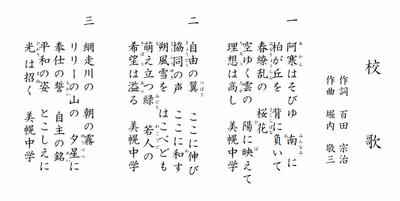 校歌
作詞 百田 宗治
作曲 堀内 敬三
一
阿寒はそびゆ 南に
柏が丘を 背に負いて
春繚乱の 桜花
空ゆく雲の 陽に映えて
理想は高し 美幌中学
二
自由の翼 ここに伸び
協同の声 ここに和す
朔風雪を はこべども
萌え立つ緑 若人の
希望は溢る 美幌中学
三
網走川の 朝の霧
リリーの山の 夕星に
奉仕の誓 自主の銘
平和の姿 とこしえに
光は招く 美幌中学